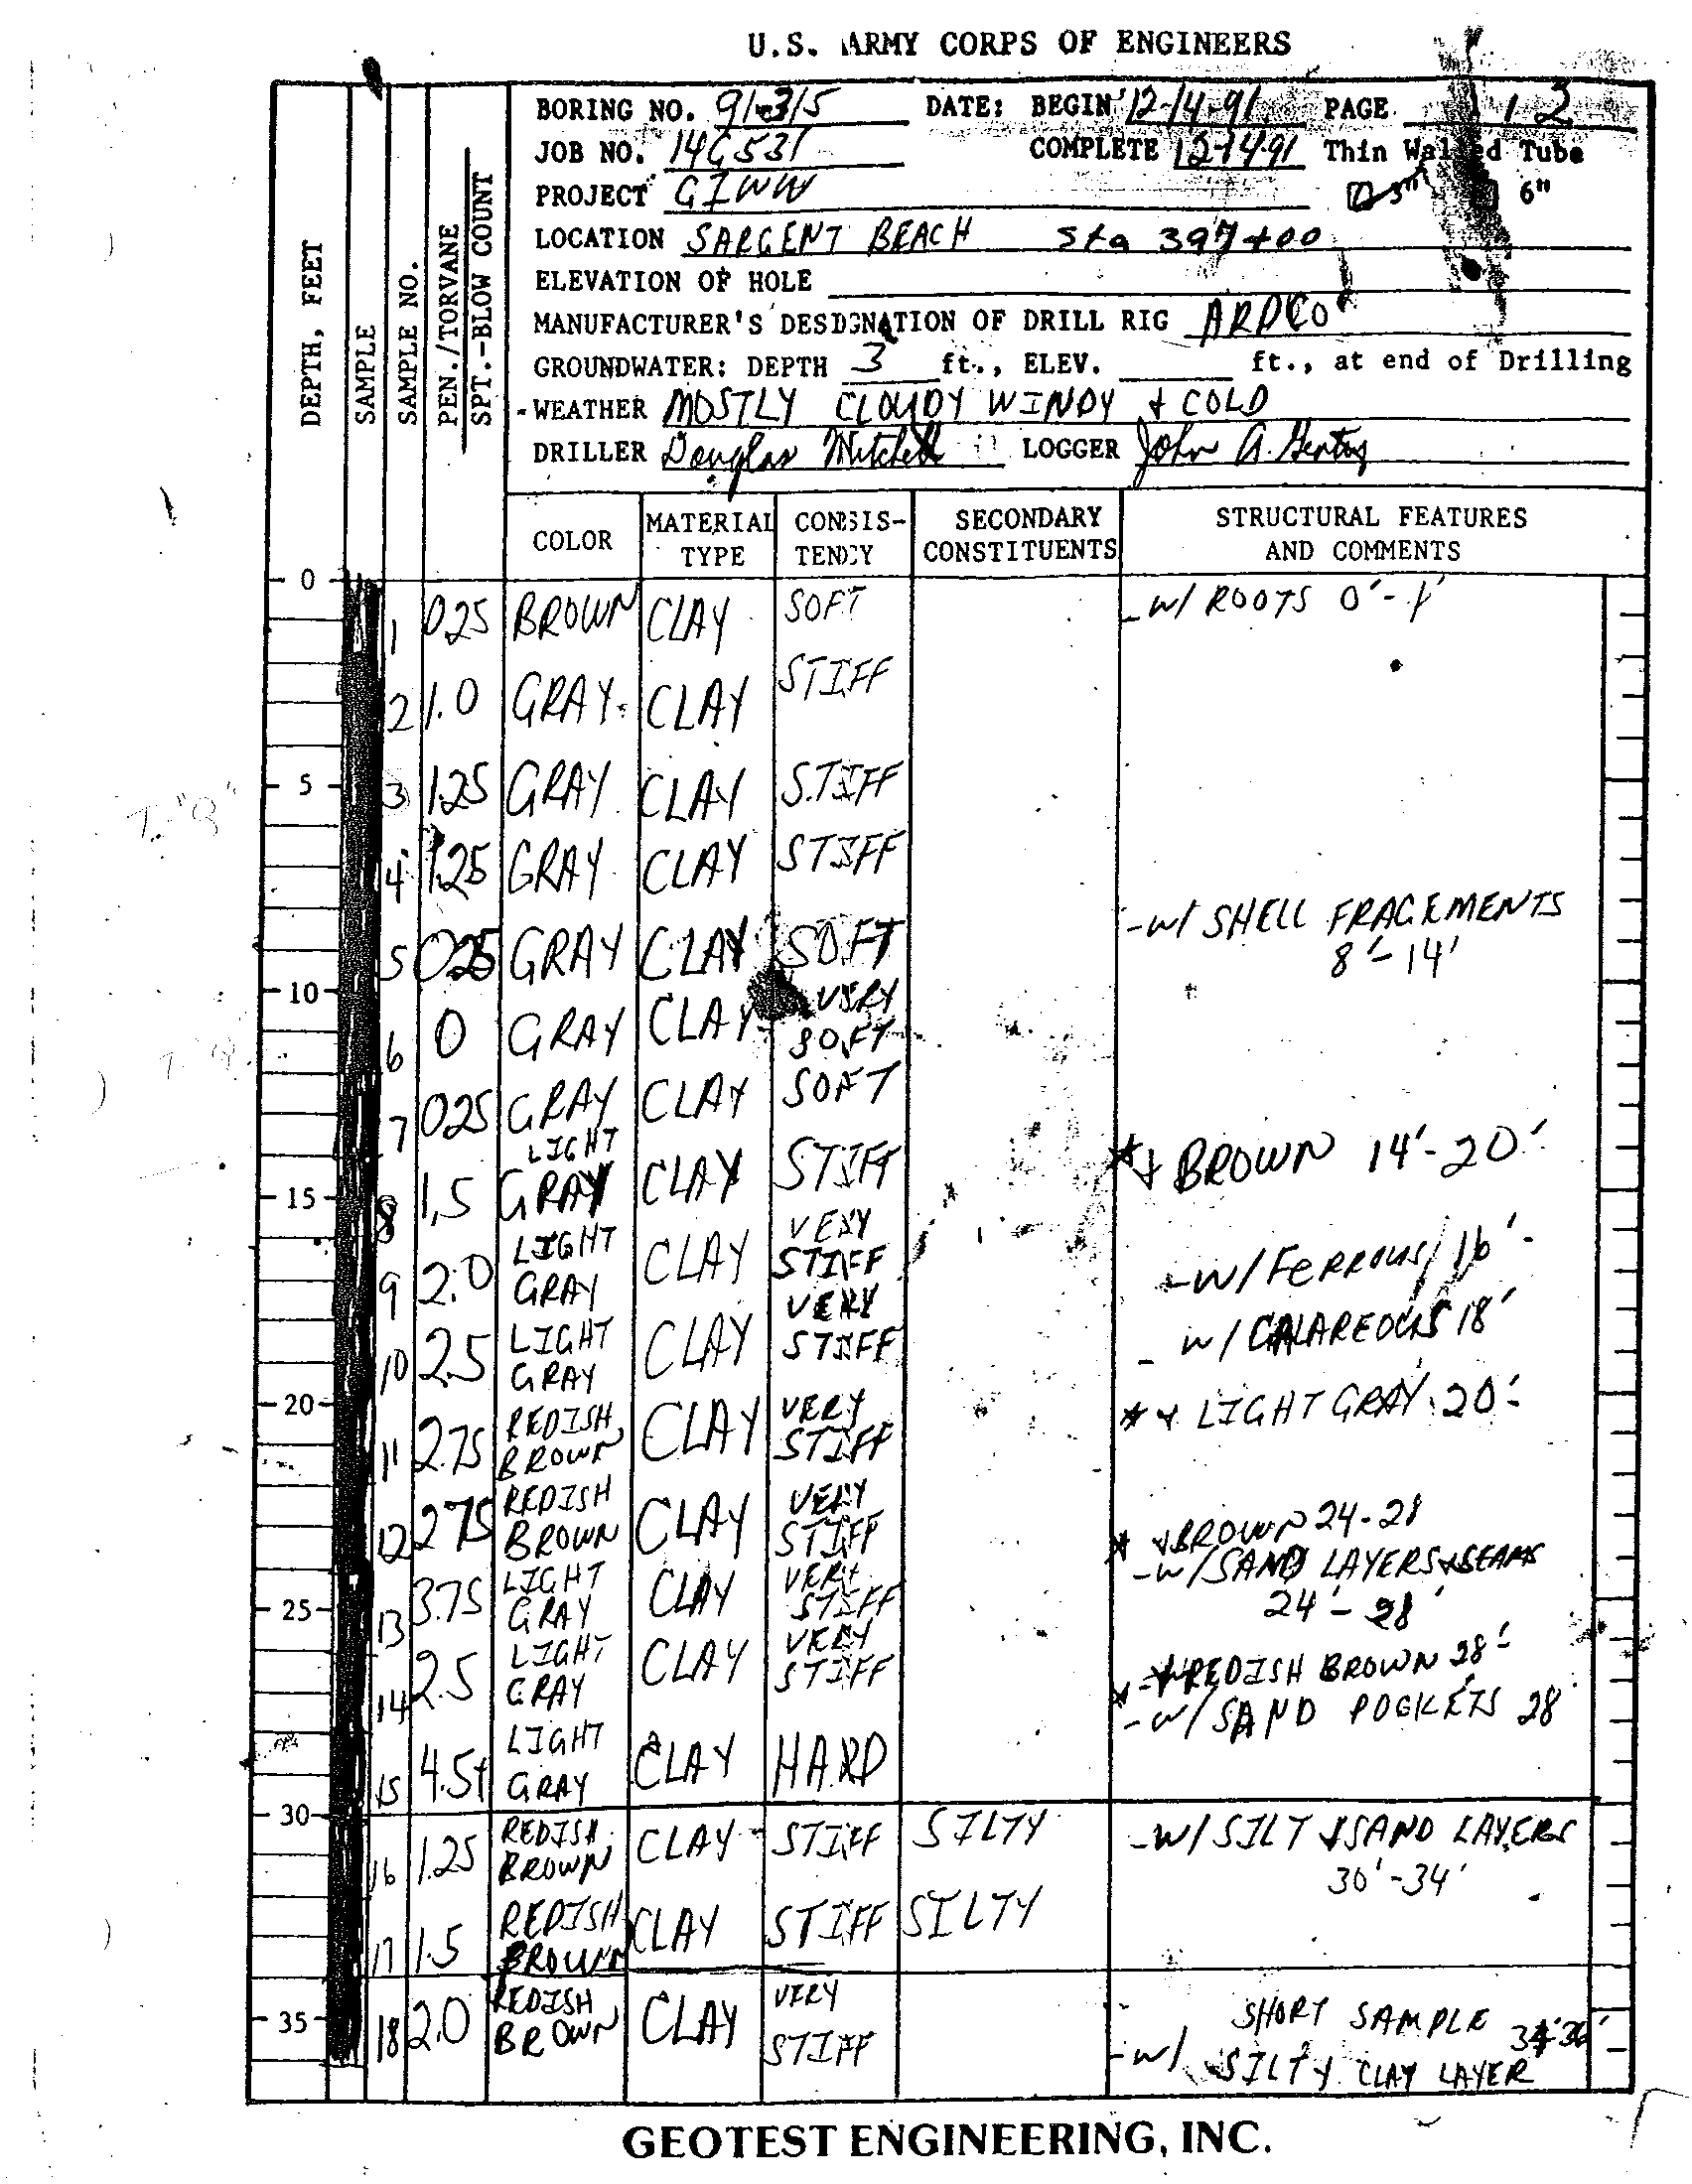 U.S. ARMY CORPS OF ENGINEERS
BORING NO. 91-315 DATE: BEGIN 12-14-91 PAGE 1 / 2
JOB NO. 14G531 COMPLETE 12-14-91 Thin Walled Tube
PROJECT GIWW 3" 6"
LOCATION SARGENT BEACH Sta 397+00
ELEVATION OF HOLE
MANUFACTURER'S DESIGNATION OF DRILL RIG ARDCO
GROUNDWATER: DEPTH 3 ft., ELEV. ft., at end of Drilling
WEATHER MOSTLY CLOUDY WINDY & COLD
DRILLER Douglas Mitchell LOGGER John A. Gentry
DEPTH, FEET
SAMPLE
SAMPLE NO.
PEN./TORVANE
SPT.-BLOW COUNT
COLOR MATERIAL TYPE CONSIS-TENCY SECONDARY CONSTITUENTS STRUCTURAL FEATURES AND COMMENTS
0
1 0.25 BROWN CLAY SOFT - w/ ROOTS 0'-1'
2 1.0 GRAY CLAY STIFF
5
3 1.25 GRAY CLAY STIFF
4 1.25 GRAY CLAY STIFF
5 0.25 GRAY CLAY SOFT - w/ SHELL FRAGEMENTS 8'-14'
10
6 0 GRAY CLAY VERY SOFT
7 0.25 GRAY CLAY SOFT
15
8 1.5 LIGHT GRAY CLAY STIFF * & BROWN 14'-20'
9 2.0 LIGHT GRAY CLAY VERY STIFF - w/ FERROUS 16'-
10 2.5 LIGHT GRAY CLAY VERY STIFF - w/ CALAREOUS 18'
20
11 2.75 REDISH BROWN CLAY VERY STIFF * & LIGHT GRAY 20'-
12 2.75 REDISH BROWN CLAY VERY STIFF
25
13 3.75 LIGHT GRAY CLAY VERY STIFF * & BROWN 24-28
- w/ SAND LAYERS & SEAMS 24'-28'
14 2.5 LIGHT GRAY CLAY VERY STIFF
15 4.5+ LIGHT GRAY CLAY HARD * & REDISH BROWN 28'-
- w/ SAND POCKETS 28
30
16 1.25 REDISH BROWN CLAY STIFF SILTY - w/ SILT & SAND LAYERS 30'-34'
17 1.5 REDISH BROWN CLAY STIFF SILTY
35
18 2.0 REDISH BROWN CLAY VERY STIFF SHORT SAMPLE 34'-36'
- w/ SILTY CLAY LAYER
GEOTEST ENGINEERING, INC.